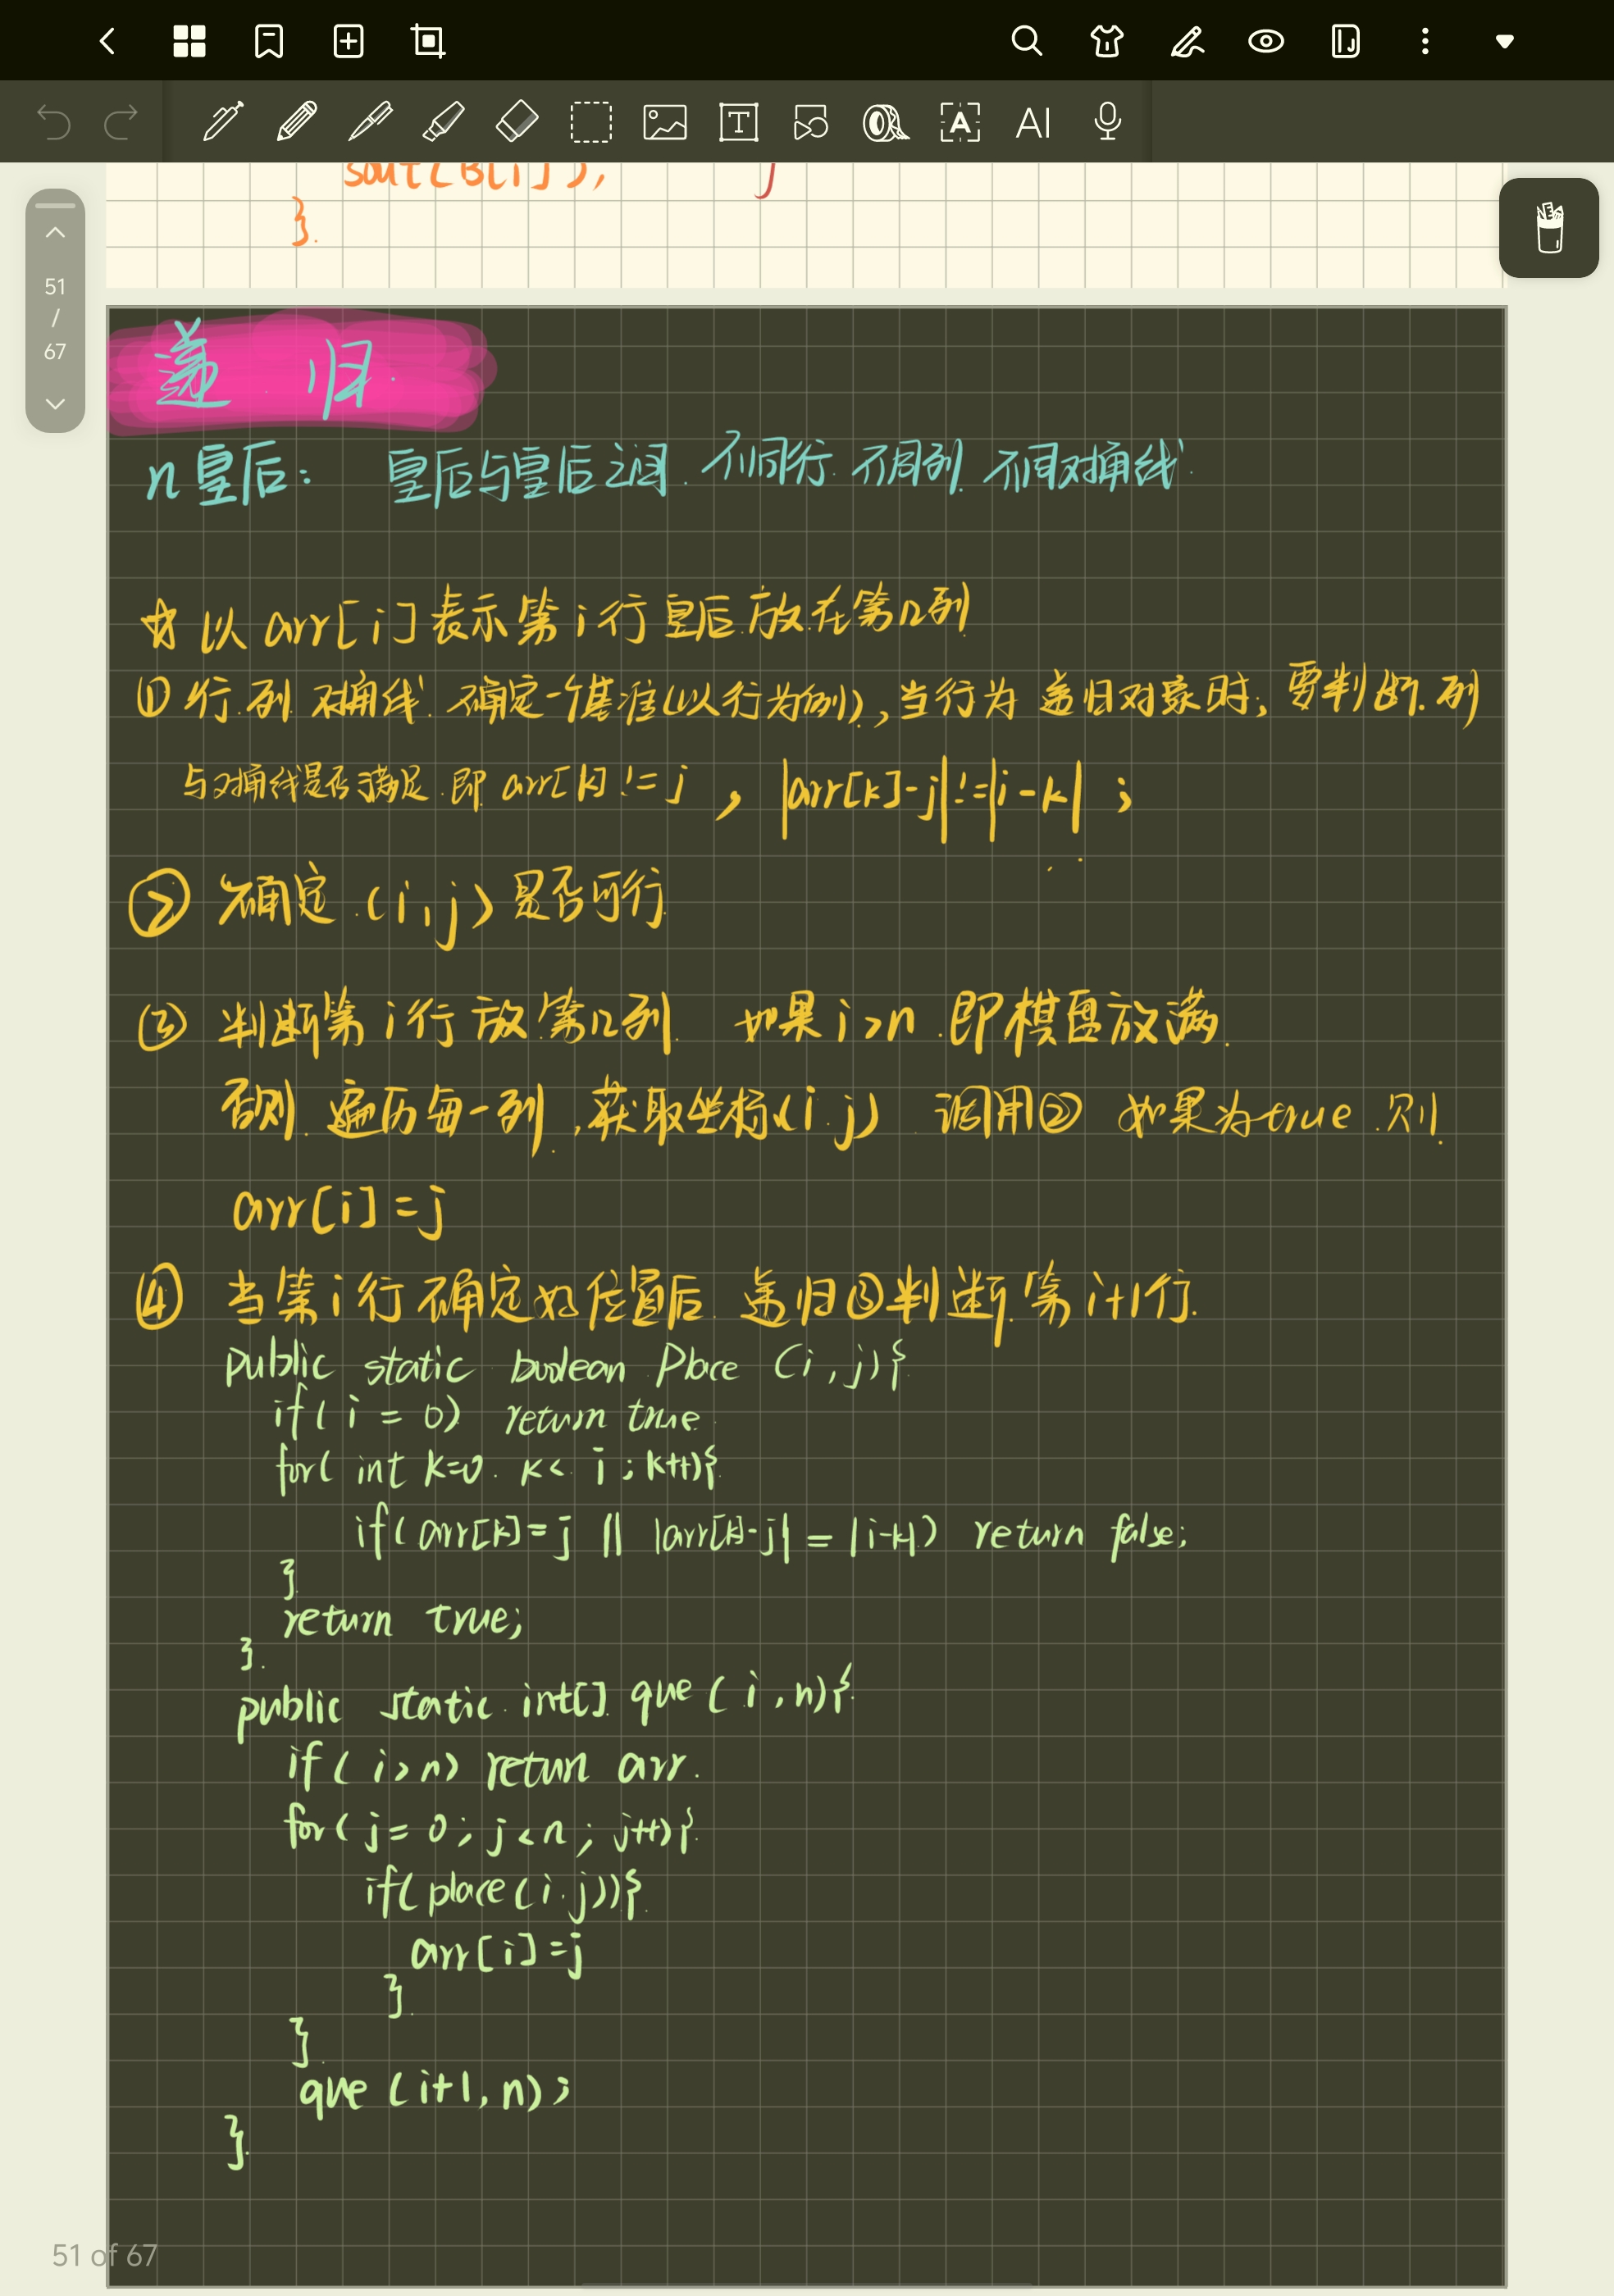 AI
sout(B[i]);
}
}.
51
/
67
递归.
n皇后: 皇后与皇后之间.不同行.不同列.不同对角线.
☆以arr[i]表示第i行皇后放在第几列
①行.列.对角线.确定一个基准(以行为例),当行为递归对象时,要判断.列
与对角线是否满足.即arr[k]!=j , |arr[k]-j|!=|i-k| ;
② 确定.(i,j)是否可行.
③ 判断第i行放第几列. 如果i>n.即棋盘放满.
否则.遍历每一列.,获取坐标(i.j) .调用② 如果为true.则.
arr[i]=j
④ 当第i行确定好位置后.递归③判断.第i+1行.
public static boolean Place (i,j){
if(i=0) return true.
for( int k=0. k< i ; k++){
if(arr[k]=j || |arr[k]-j| = |i-k|) return false;
}.
return true;
}.
public static int[] que(i,n){
if(i>n) retun arr.
for(j=0;j<n;j++){
if(place(i.j)){
arr[i]=j
}.
}.
que(i+1,n);
}.
51 of 67